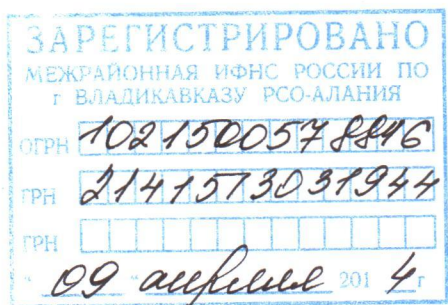 ЗАРЕГИСТРИРОВАНО
МЕЖРАЙОННАЯ ИФНС РОССИИ ПО
г ВЛАДИКАВКАЗУ РСО-АЛАНИЯ
ОГРН 1021500578846
ГРН 2141513031944
ГРН
" 09 " апреля 2014 г